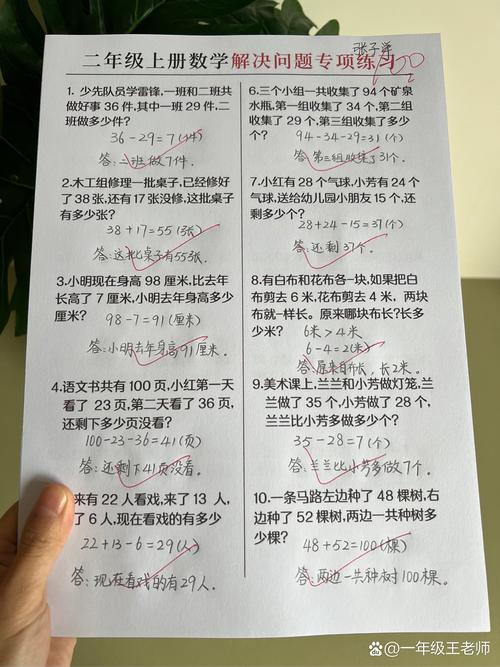 张子谦
二年级上册数学解决问题专项练习
100
1. 少先队员学雷锋,一班和二班共
做好事36件,其中一班29件,二
班做多少件?
36-29=7(件)
答:二班做7件.
2.木工组修理一批桌子,已经修好
了38张,还有17张没修,这批桌子
有多少张?
38+17=55(张)
答:这批桌子有55张.
3.小明现在身高98厘米,比去年
长高了7厘米,小明去年身高多少
厘米?
98-7=91(厘米)
答:小明去年身高91厘米.
4.语文书共有100页,小红第一天
看了 23页,第二天看了36页,
还剩下多少页没看?
100-23-36=41(页)
答:还剩下41页没看.
来有22人看戏,来了13 人,
了6人,现在看戏的有多少
22+13-6=29(人)
答:现在看戏的有29人.
6.三个小组一共收集了94个矿泉
水瓶,第一组收集了34个,第二组
收集了29个,第三组收集了多少
个?
94-34-29=31(个)
答:第三组收集了31个.
7.小红有28个气球,小芳有24个
气球,送给幼儿园小朋友15个,还
剩多少个?
28+24-15=37(个)
答:还剩37个.
8.有白布和花布各一块,如果把白
布剪去6米,花布剪去4米,两块
布就一样长。原来哪块布长?长多
少米?
6米>4米
6-4=2(米)
答:原来白布长,长2米.
9.美术课上,兰兰和小芳做灯笼,兰
兰做了35个,小芳做了28个,
兰兰比小芳多做多少个?
35-28=7(个)
答:兰兰比小芳多做7个.
10.一条马路左边种了48棵树,右
边种了52棵树,两边一共种树多
少棵?
48+52=100(棵)
答:两边一共种树100棵.
@一年级王老师